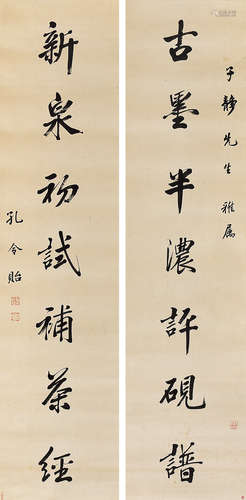 子靜先生雅属
古墨半濃評硯譜
新泉初試補茶經
孔令貽